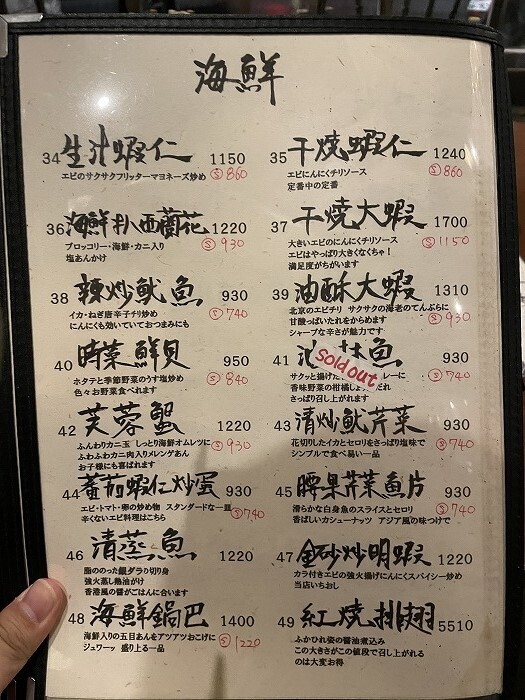 海鮮
34 生汁蝦仁 1150
エビのサクサクフリッターマヨネーズ炒め Ⓢ860
35 干燒蝦仁 1240
エビにんにくチリソース Ⓢ860
定番中の定番
36 海鮮扒西蘭花 1220
ブロッコリー・海鮮・カニ入り Ⓢ930
塩あんかけ
37 干燒大蝦 1700
大きいエビのにんにくチリソース Ⓢ1150
エビはやっぱり大きくなくちゃ！
満足度がちがいます
38 辣炒魷魚 930
イカ・ねぎ唐辛子チリ炒め Ⓢ740
にんにくも効いていておつまみにも
39 油酥大蝦 1310
北京のエビチリ サクサクの海老のてんぷらに
甘酸っぱいたれをからめます Ⓢ930
シャープな辛さが魅力です
40 時菜鮮貝 950
ホタテと季節野菜のうす塩炒め Ⓢ840
色々お野菜食べれます
41 魚 930
sold out
サクッと揚げた レーに Ⓢ740
香味野菜の柑橘しょ だれ
さっぱり召し上がれます
42 芙蓉蟹 1220
ふんわりカニ玉 しっとり海鮮オムレツに Ⓢ930
ふわふわカニ肉入りメレンゲあん
お子様にも喜ばれます
43 清炒魷芹菜 930
花切りしたイカとセロリをさっぱり塩味で Ⓢ740
シンプルで食べ易い一品
44 蕃茄蝦仁炒蛋 930
エビ・トマト・卵の炒め物 スタンダードな一皿 Ⓢ740
辛くないエビ料理はこちら
45 腰果芹菜魚片 930
滑らかな白身魚のスライスとセロリ Ⓢ740
香ばしいカシューナッツ アジア風の味つけで
46 清蒸魚 1220
脂ののった銀ダラの切り身
強火蒸し熱油がけ
香港風の醤がごはんに合います
47 金砂炒明蝦 1220
カラ付きエビの強火揚げにんにくスパイシー炒め
当店いちおし
48 海鮮鍋巴 1400
海鮮入りの五目あんをアツアツおこげに Ⓢ1220
ジュワーッ 盛り上る一品
49 紅燒排翅 5510
ふかひれ姿の醤油煮込み
この大きさがこの値段で召し上がれる
のは大変お得